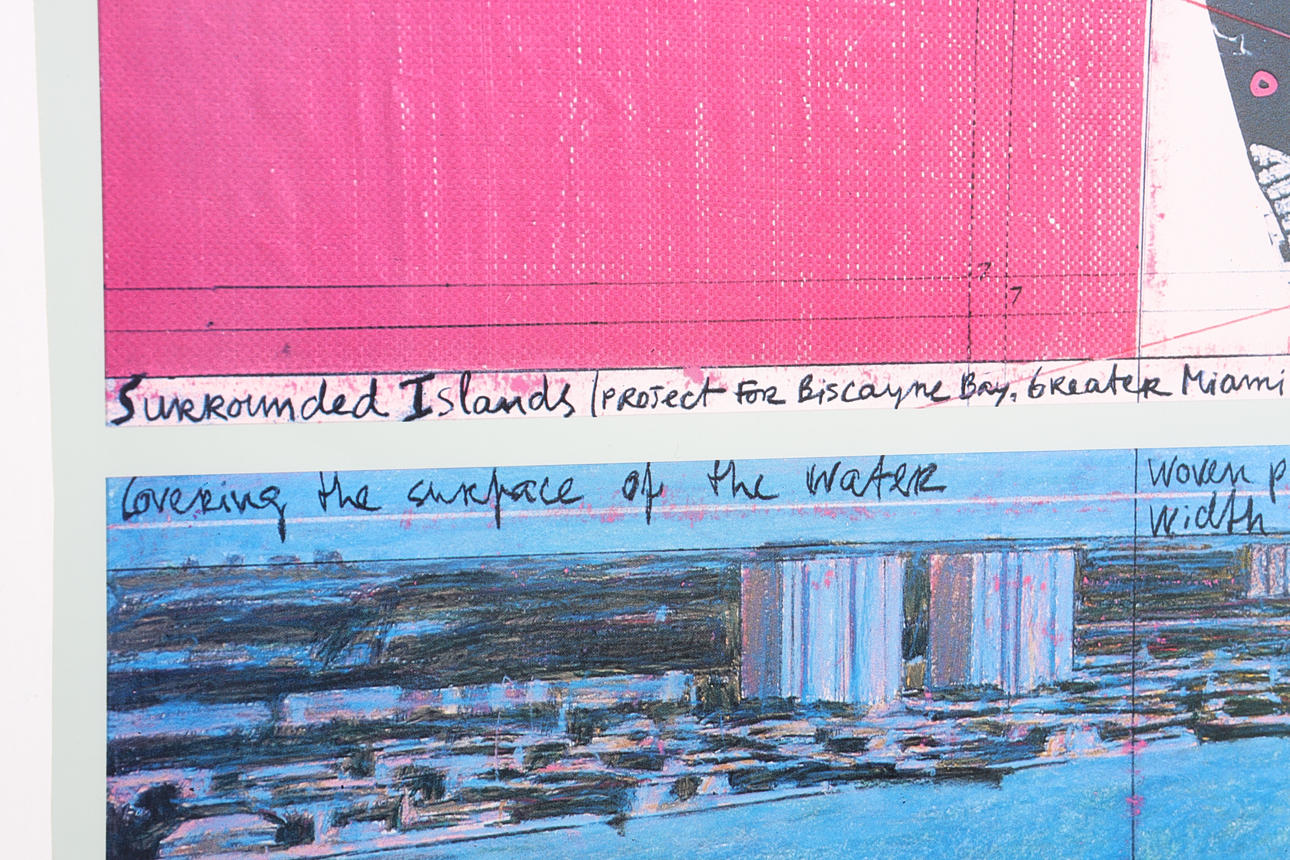 7
7
Surrounded Islands (PROJect FOR Biscayne Bay, Greater Miami
Covering the surface of the water
Woven p
Width